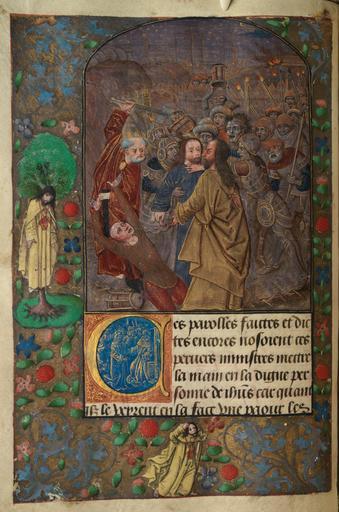 Ces parolles faictes et dic
tes encores nosoient ces
peruers ministres mettre
la main en sa digne per
sonne de ihus car quant
ilz le virent en sa face une partie les